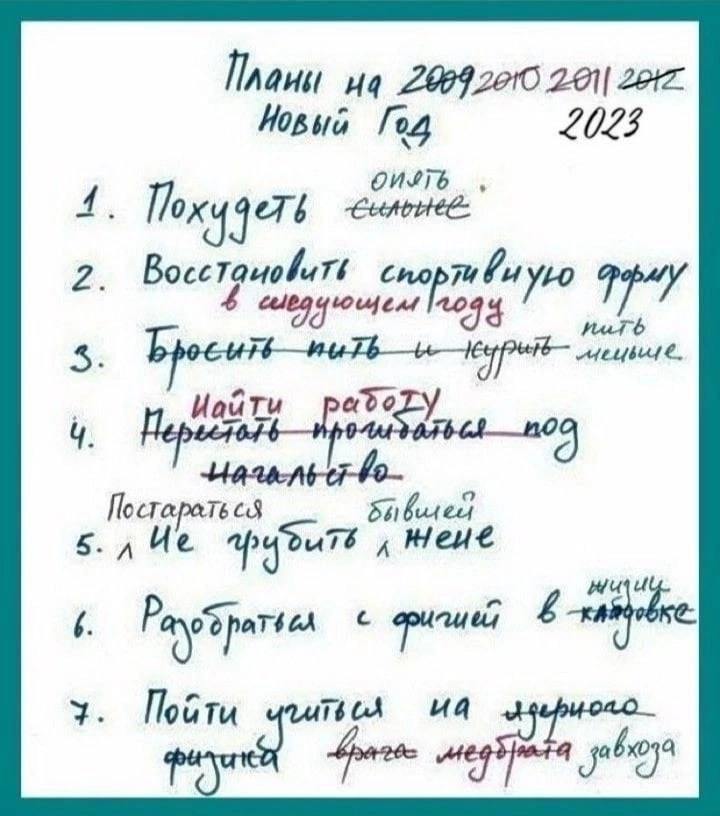 Планы на 2009 2010 2011 2012
Новый Год 2023
опять
1. Похудеть сильнее
2. Восстановить спортивную форму
в следующем году
пить
3. Бросить пить и курить меньше
Найти работу
4. Перестать прогибаться под
начальство
Постараться бывшей
5. Не грубить жене
жизни
6. Разобраться с фигнёй в кладовке
7. Пойти учиться на ядерного
физика врача медбрата завхоза